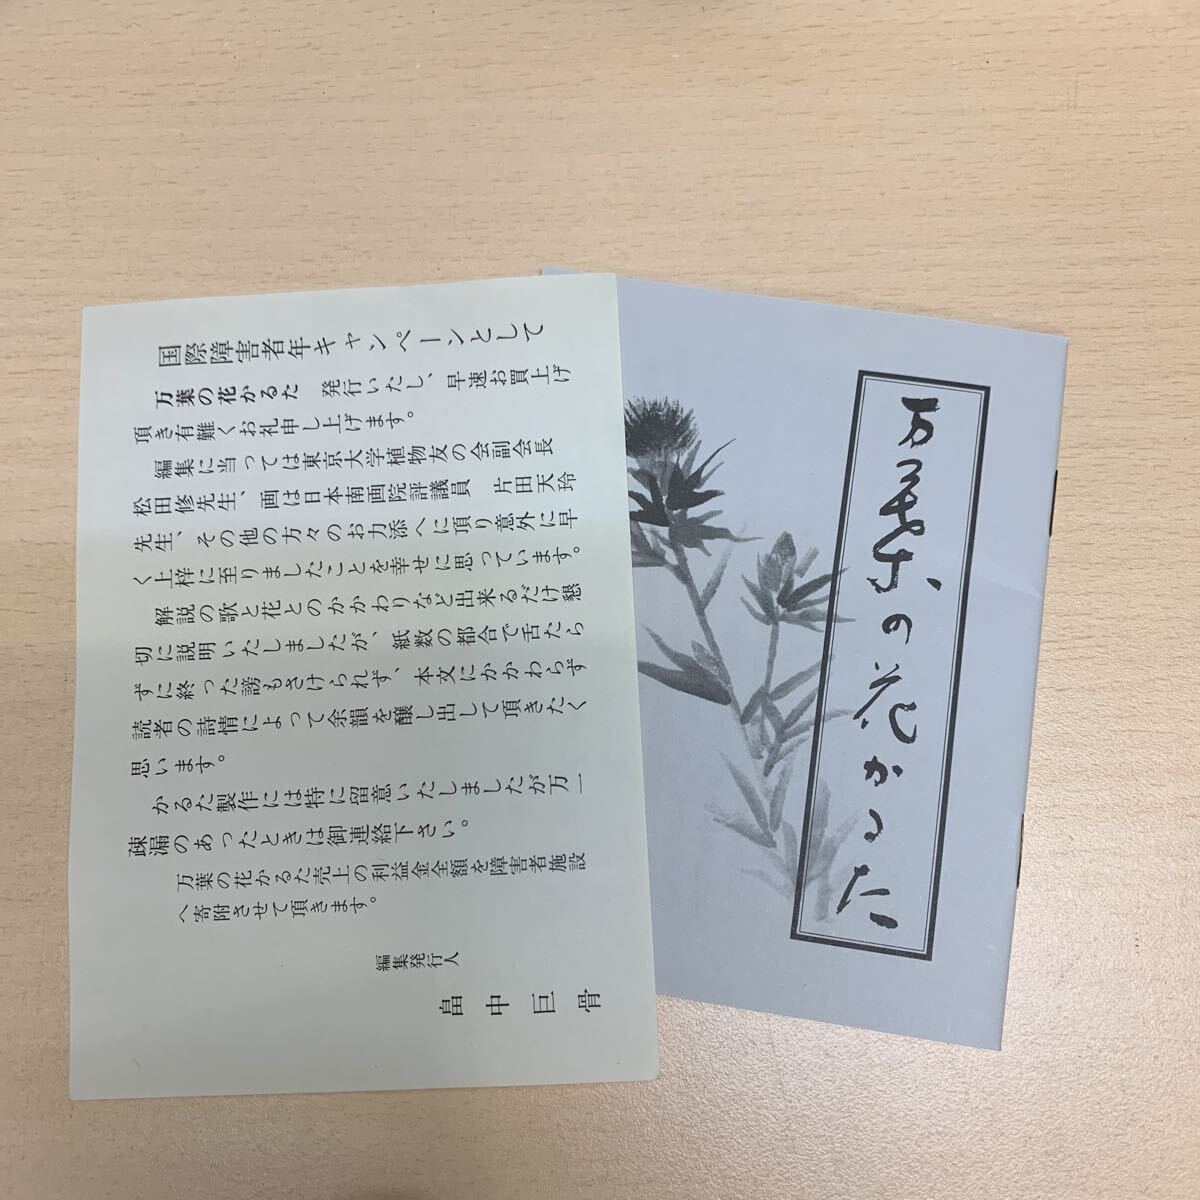 国際障害者年キャンペーンとして
万葉の花かるた 発行いたし、早速お買上げ
頂き有難くお礼申し上げます。
編集に当っては東京大学植物友の会副会長
松田修先生、画は日本南画院評議員 片田天玲
先生、その他の方々のお力添へに頂り意外に早
く上梓に至りましたことを幸せに思っています。
解説の歌と花とのかかわりなど出来るだけ懇
切に説明いたしましたが、紙数の都合で舌たら
ずに終った謗もさけられず、本文にかかわらず
読者の詩情によって余韻を醸し出して頂きたく
思います。
かるた製作には特に留意いたしましたが万一
疎漏のあったときは御連絡下さい。
万葉の花かるた売上の利益金全額を障害者施設
へ寄附させて頂きます。
編集発行人
畠中巨骨
万葉の花かるた